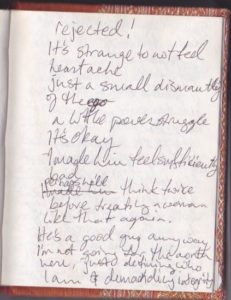 rejected!
It's strange to not feel
heartache
just a small dismantling
of the ego
a little power struggle
It's okay
I made him feel sufficiently
bad
Perhaps he'll
think twice
before treating a woman
like that again.
He's a good guy anyway
I'm not the
here, just defining who
I am & demanding integrity